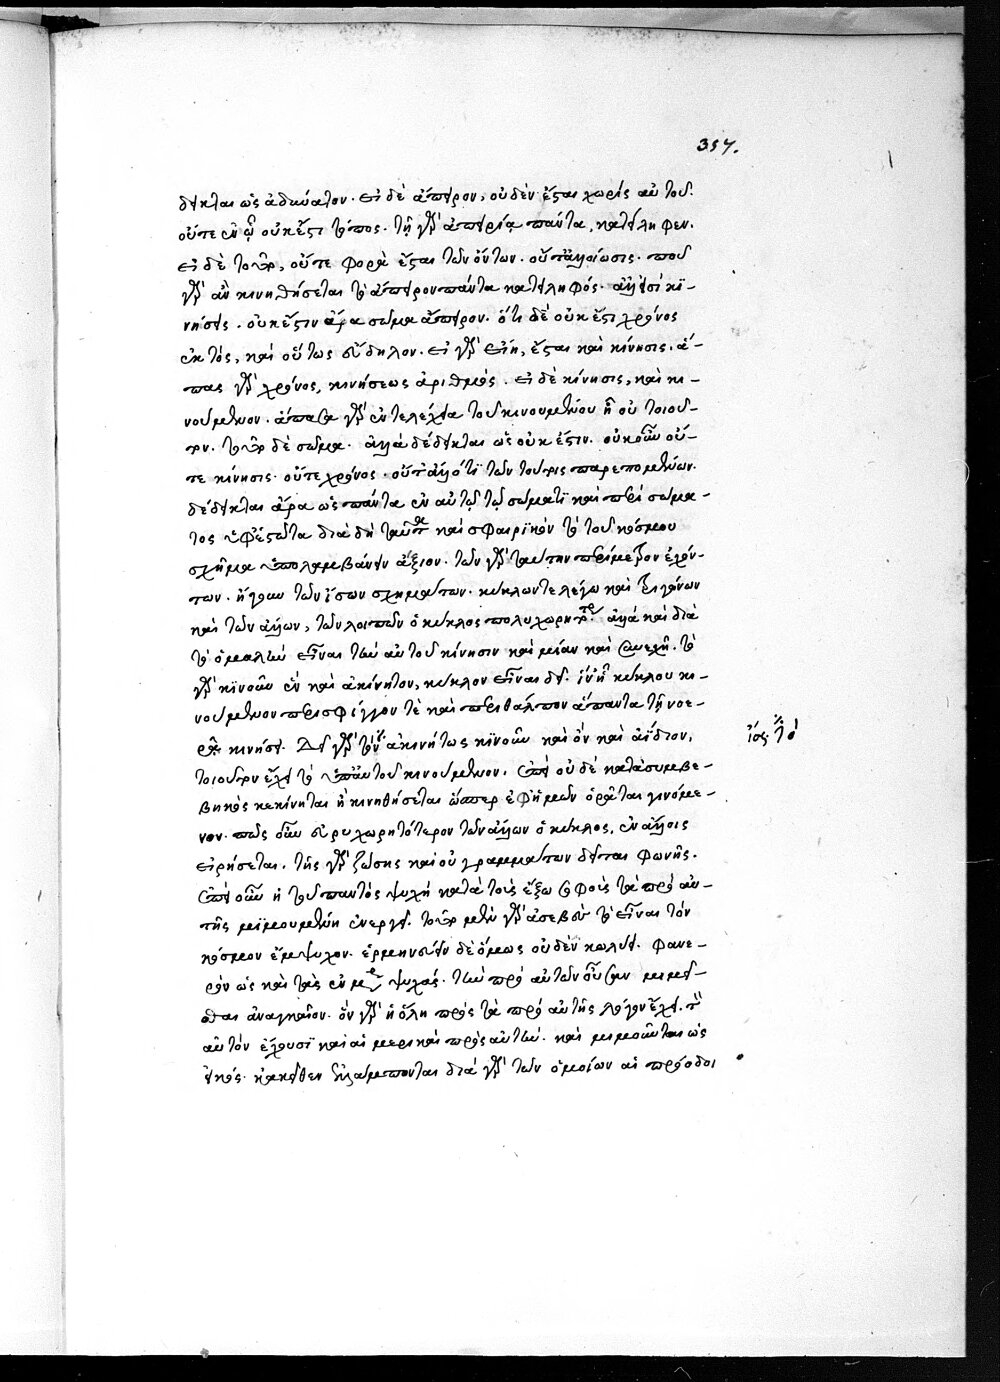 357.
δεικται ὡς ἀδύνατον. εἰ δὲ ἄπειρον, οὐδὲν ἔσται χωρὶς αὐτοῦ.
οὔτε ἐν ᾧ οὐκ ἔστι τόπος. τῇ γὰρ ἀπειρίᾳ πάντα, κατείληφεν.
εἰ δὲ τοῦτο, οὔτε φορὰ ἔσται τῶν ὄντων. οὔτ' ἀλλοίωσις. ποῦ
γὰρ ἂν κινηθήσεται τὸ ἄπειρον πάντα κατειληφός. ἀλλ' εἰσὶ κι-
νήσεις. οὐκ ἔστιν ἄρα σῶμα ἄπειρον. ὅτι δὲ οὐκ ἔστι χρόνος
ἐκτὸς, καὶ οὕτως εὔδηλον. εἰ γὰρ εἴη, ἔσται καὶ κίνησις. ἅ-
πας γὰρ χρόνος, κινήσεως ἀριθμός. εἰ δὲ κίνησις, καὶ κι-
νούμενον. ἅπασα γὰρ ἐντελέχεια τοῦ κινουμένου ᾗ οὐ τοιοῦ-
τον. τοῦτο δὲ σῶμα. ἀλλὰ δέδεικται ὡς οὐκ ἔστιν. οὐκοῦν οὔ-
τε κίνησις. οὔτε χρόνος. οὔτ' ἄλλό τι τῶν τούτοις παρεπομένων.
δέδεικται ἄρα ὡς πάντα ἐν αὐτῷ τῷ σώματι καὶ περὶ σώμα-
τος ὑφεστῶτα διὰ δὴ ταῦτα καὶ σφαιρικὸν τὸ τοῦ κόσμου
σχῆμα ὑπολαμβάνειν ἄξιον. τῶν γὰρ ταυτην περίμετρον ἐχόν-
των. ἤγουν τῶν ἴσων σχημάτων. κύκλων τε λέγω καὶ τριγώνων
καὶ τῶν ἄλλων, τῶν λοιπῶν ὁ κύκλος πολυχωρητότερος. ἀλλὰ καὶ διὰ
τὸ ὁμαλὴν εἶναι τὴν αὐτοῦ κίνησιν καὶ μίαν καὶ συνεχῆ. τὸ
γὰρ κινοῦν ἓν καὶ ἀκίνητον, κύκλον εἶναι δεῖ. ἵν' ᾖ κύκλου κι-
νούμενον περισφίγγον τὲ καὶ περιθάλπον ἅπαντα τῇ νοε-
ρᾷ κινήσει. Δεῖ γὰρ τὸ ἀκινήτως κινοῦν καὶ ὂν καὶ ἀΐδιον,
ἴσως τὸ
τοιοῦτον ἔχει τὸ ὑπ' αὐτοῦ κινούμενον. ἐπεὶ οὐδὲ κατὰ συμβε-
βηκὸς κεκίνηται ἢ κινηθήσεται ὥσπερ ἐφ' ἡμῶν ὁρᾶται γινόμε-
νον. πῶς οὖν εὐρυχωρητότερον τῶν ἄλλων ὁ κύκλος, ἐν ἄλλοις
εἰρήσεται. τῆς γὰρ ζώσης καὶ οὐ γραμμάτων δεῖται φωνῆς.
ἐπεὶ οὖν ἡ τοῦ παντὸς ψυχὴ κατὰ τοὺς ἔξω σοφοὺς τὰ πρὸ αὐ-
τῆς μιμουμένη ἐνεργεῖ. τοῦτο μὲν γὰρ ἀσεβοῦς τὸ εἶναι τὸν
κόσμον ἔμψυχον. ἑρμηνεύειν δὲ ὅμως οὐδὲν κωλύει. φανε-
ρὸν ὡς καὶ τὰς ἐν μέρει ψυχάς. τὴν πρὸ αὐτῶν οὖσαν μιμεῖ-
σθαι ἀναγκαῖον. ὃν γὰρ ἡ ὅλη πρὸς τὰ πρὸ αὐτῆς λόγον ἔχει. τὸν
αὐτὸν ἔχουσι καὶ αἱ μερικαὶ πρὸς αὐτήν. καὶ μιμοῦνται ὡς
εἰκός. κἀκεῖθεν ἐλλάμπονται διὰ γὰρ τῶν ὁμοίων αἱ πρόοδοι